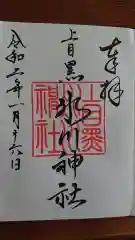 奉拝
上目黒
氷川神社
令和二年一月十六日
上目黒氷川神社